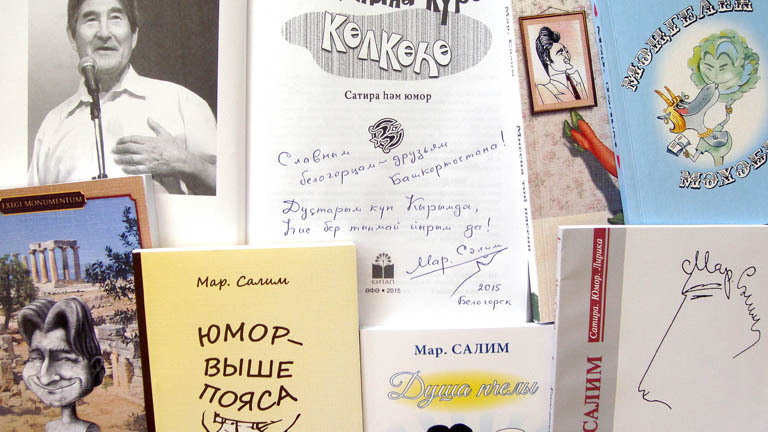 КӨЛКӨҺӨ
Сатира һәм юмор
Славным
белогорцам – друзьям
Башкортостана!
Дуҫтарым күп Ҡырымда,
Һис бер тынмай йырым да!
Мар. Сәлим
2015
Белогорск
КИТАП
ӨФӨ • 2015
МӘҢГЕЛЕК
EXEGI MONUMENTUM
Мар. Салим
ЮМОР–
ВЫШЕ
ПОЯСА
Мар. САЛИМ
Душа пчелы
САЛИМ
Сатира. Юмор. Лирика
Мар. Салим